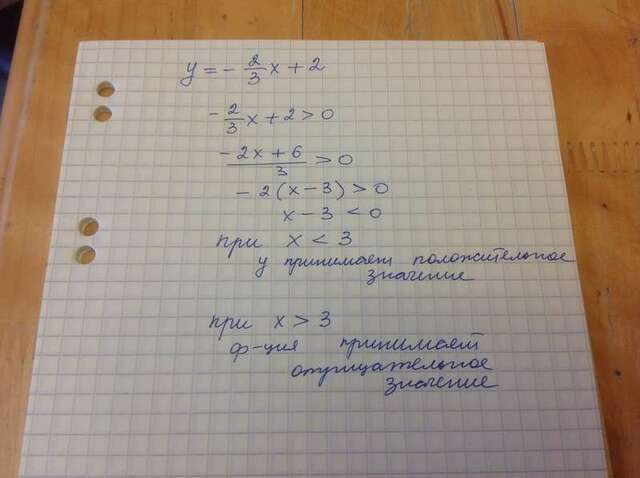 y = - 2/3 x + 2
- 2/3 x + 2 > 0
(- 2x + 6)/3 > 0
- 2(x - 3) > 0
x - 3 < 0
при x < 3
y принимает положительное
значение
при x > 3
ф-ция принимает
отрицательное
значение